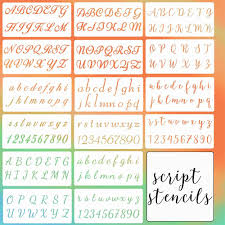 ABCDEFG
HIJKLM
ABCDEFG
HIJKLM
ABCDEFG
HIJKLM
NOPQRST
UVWXYZ
NOPQRST
UVWXYZ
NOPQRST
UVWXYZ
abcdefghi
jklmnopq
abcdefghi
jklmnopq
abcdefghi
jklmnopq
rstuvwxyz
1234567890
rstuvwxyz
1234567890
rstuvwxyz
1234567890
ABCDEFG
HIJKLM
abcdefghi
jklmnopq
script
stencils
NOPQRST
UVWXYZ
rstuvwxyz
1234567890